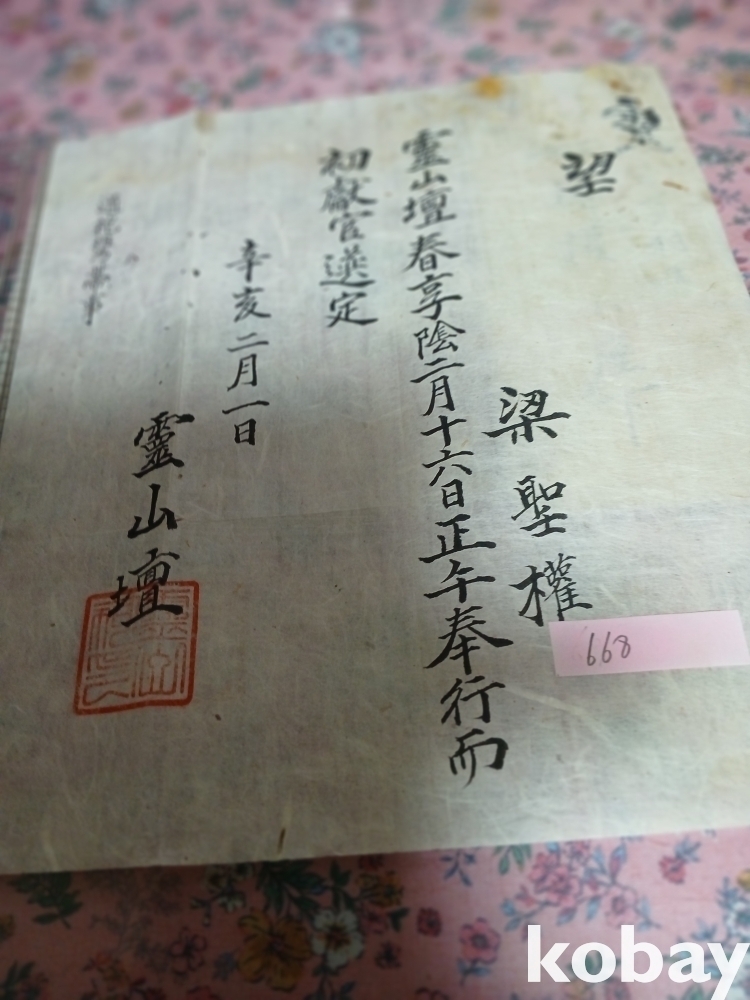 望
梁聖權
靈山壇春享陰二月十六日正午奉行而
初獻官選定
辛亥二月一日
靈山壇
668
kobay